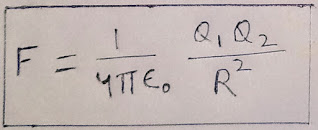 F = 1/4πϵ₀ Q₁Q₂/R²